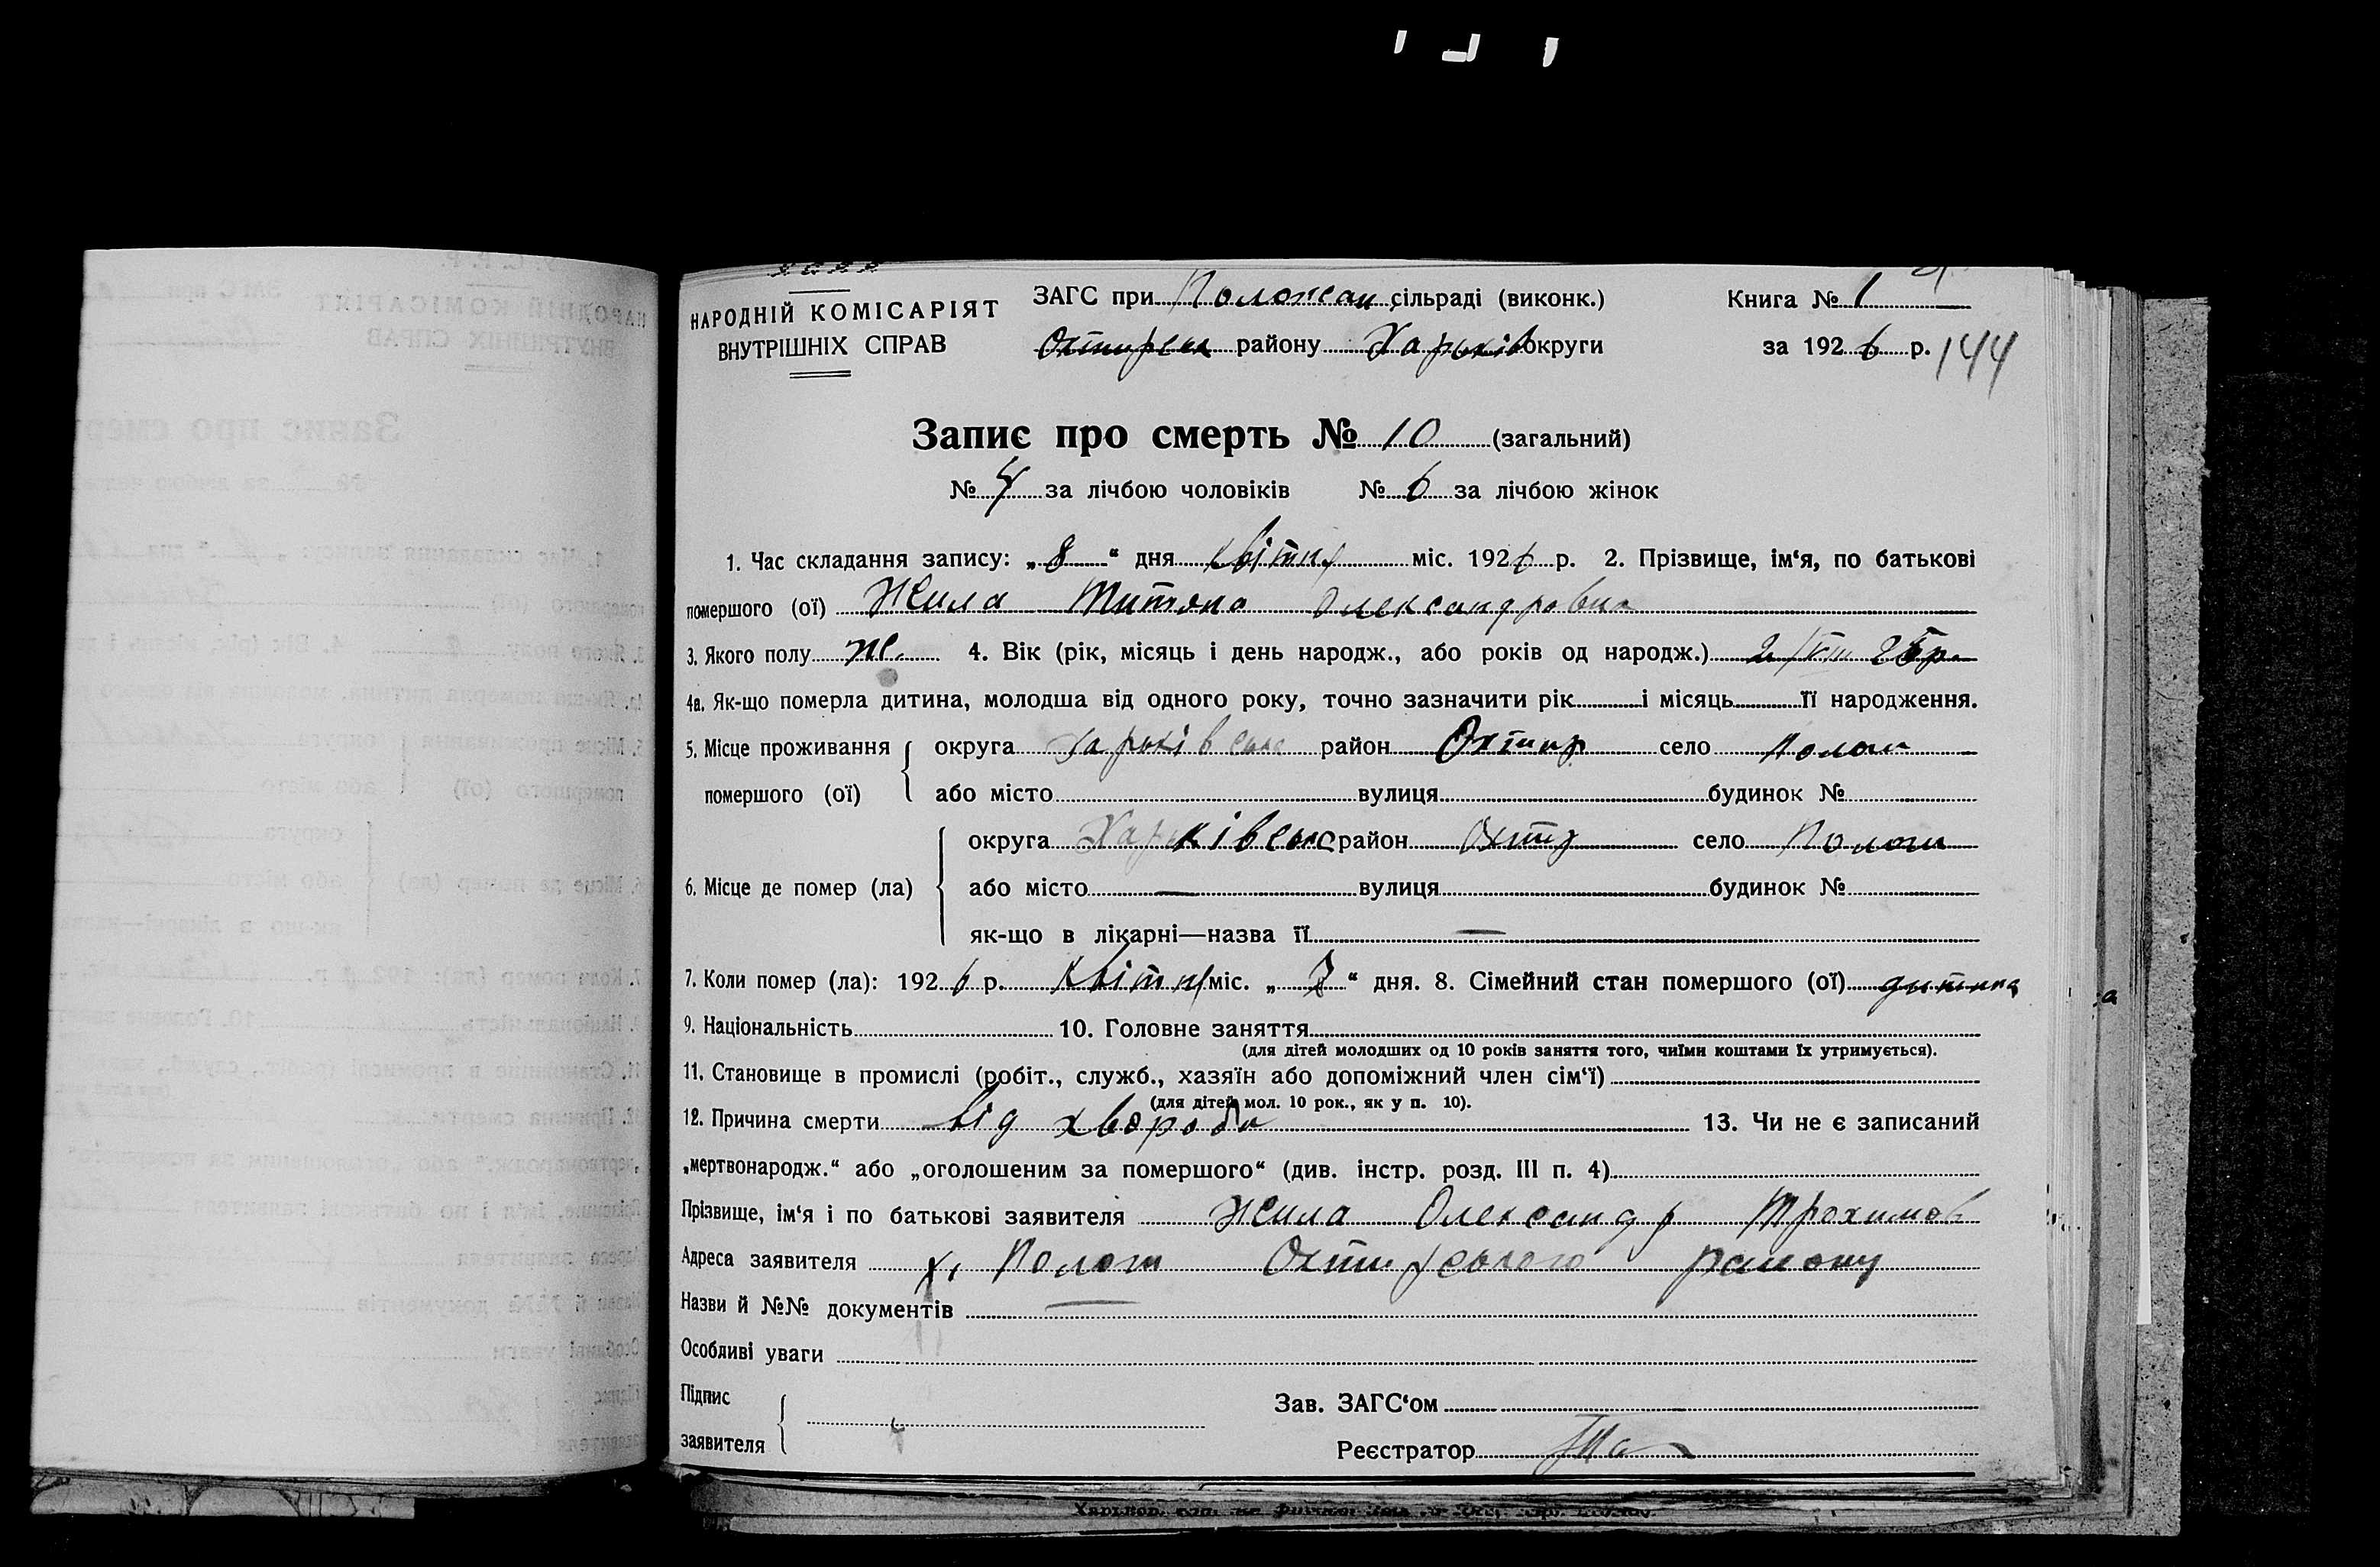 У.С.Р.Р.
НАРОДНІЙ КОМІСАРІЯТ
ВНУТРІШНІХ СПРАВ
ЗАГС при сільраді (виконк.)
Охтирськ району Харьків округи
Книга № 1
за 1926 р. 144
Запис про смерть № 10 (загальний)
№ 4 за лічбою чоловіків № 6 за лічбою жінок
1. Час складання запису: „8“ дня квітня міс. 1926 р. 2. Прізвище, ім‘я, по батькові
помершого (ої) Жила Олександровна
3. Якого полу ж. 4. Вік (рік, місяць і день народж., або років од народж.)
4а. Як-що померла дитина, молодша від одного року, точно зазначити рік і місяць її народження.
5. Місце проживання помершого (ої) округа Харьківська район Охтир село
або місто вулиця будинок №
6. Місце де помер (ла) округа Харьківськ район Охтир село
або місто — вулиця будинок №
як-що в лікарні—назва її —
7. Коли помер (ла): 1926 р. Квітня міс. „7“ дня. 8. Сімейний стан помершого (ої) дитина
9. Національність 10. Головне заняття
(для дітей молодших од 10 років заняття того, чиїми коштами їх утримується).
11. Становище в промислі (робіт., служб., хазяїн або допоміжний член сім‘ї)
(для дітей мол. 10 рок., як у п. 10).
12. Причина смерти від хвороби 13. Чи не є записаний
„мертвонародж.“ або „оголошеним за помершого“ (див. інстр. розд. III п. 4)
Прізвище, ім‘я і по батькові заявителя Жила Олександр Трохимов
Адреса заявителя х. Охтирського району
Назви й №№ документів —
Особливі уваги
Підпис заявителя
Зав. ЗАГС‘ом
Реєстратор